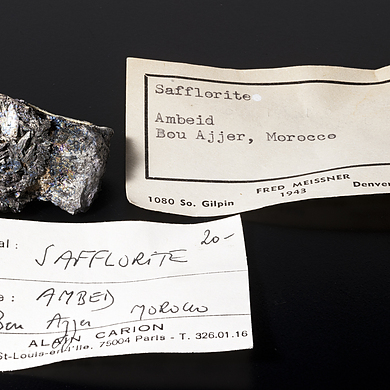 Safflorite
Ambeid
Bou Ajjer, Morocco
FRED MEISSNER
1080 So. Gilpin 1943 Denver
al: SAFFLORITE 20-
e: AMBED
Bou Ajjer MOROCCO
ALAIN CARION
St-Louis-en-l'Ile, 75004 Paris - T. 326.01.16